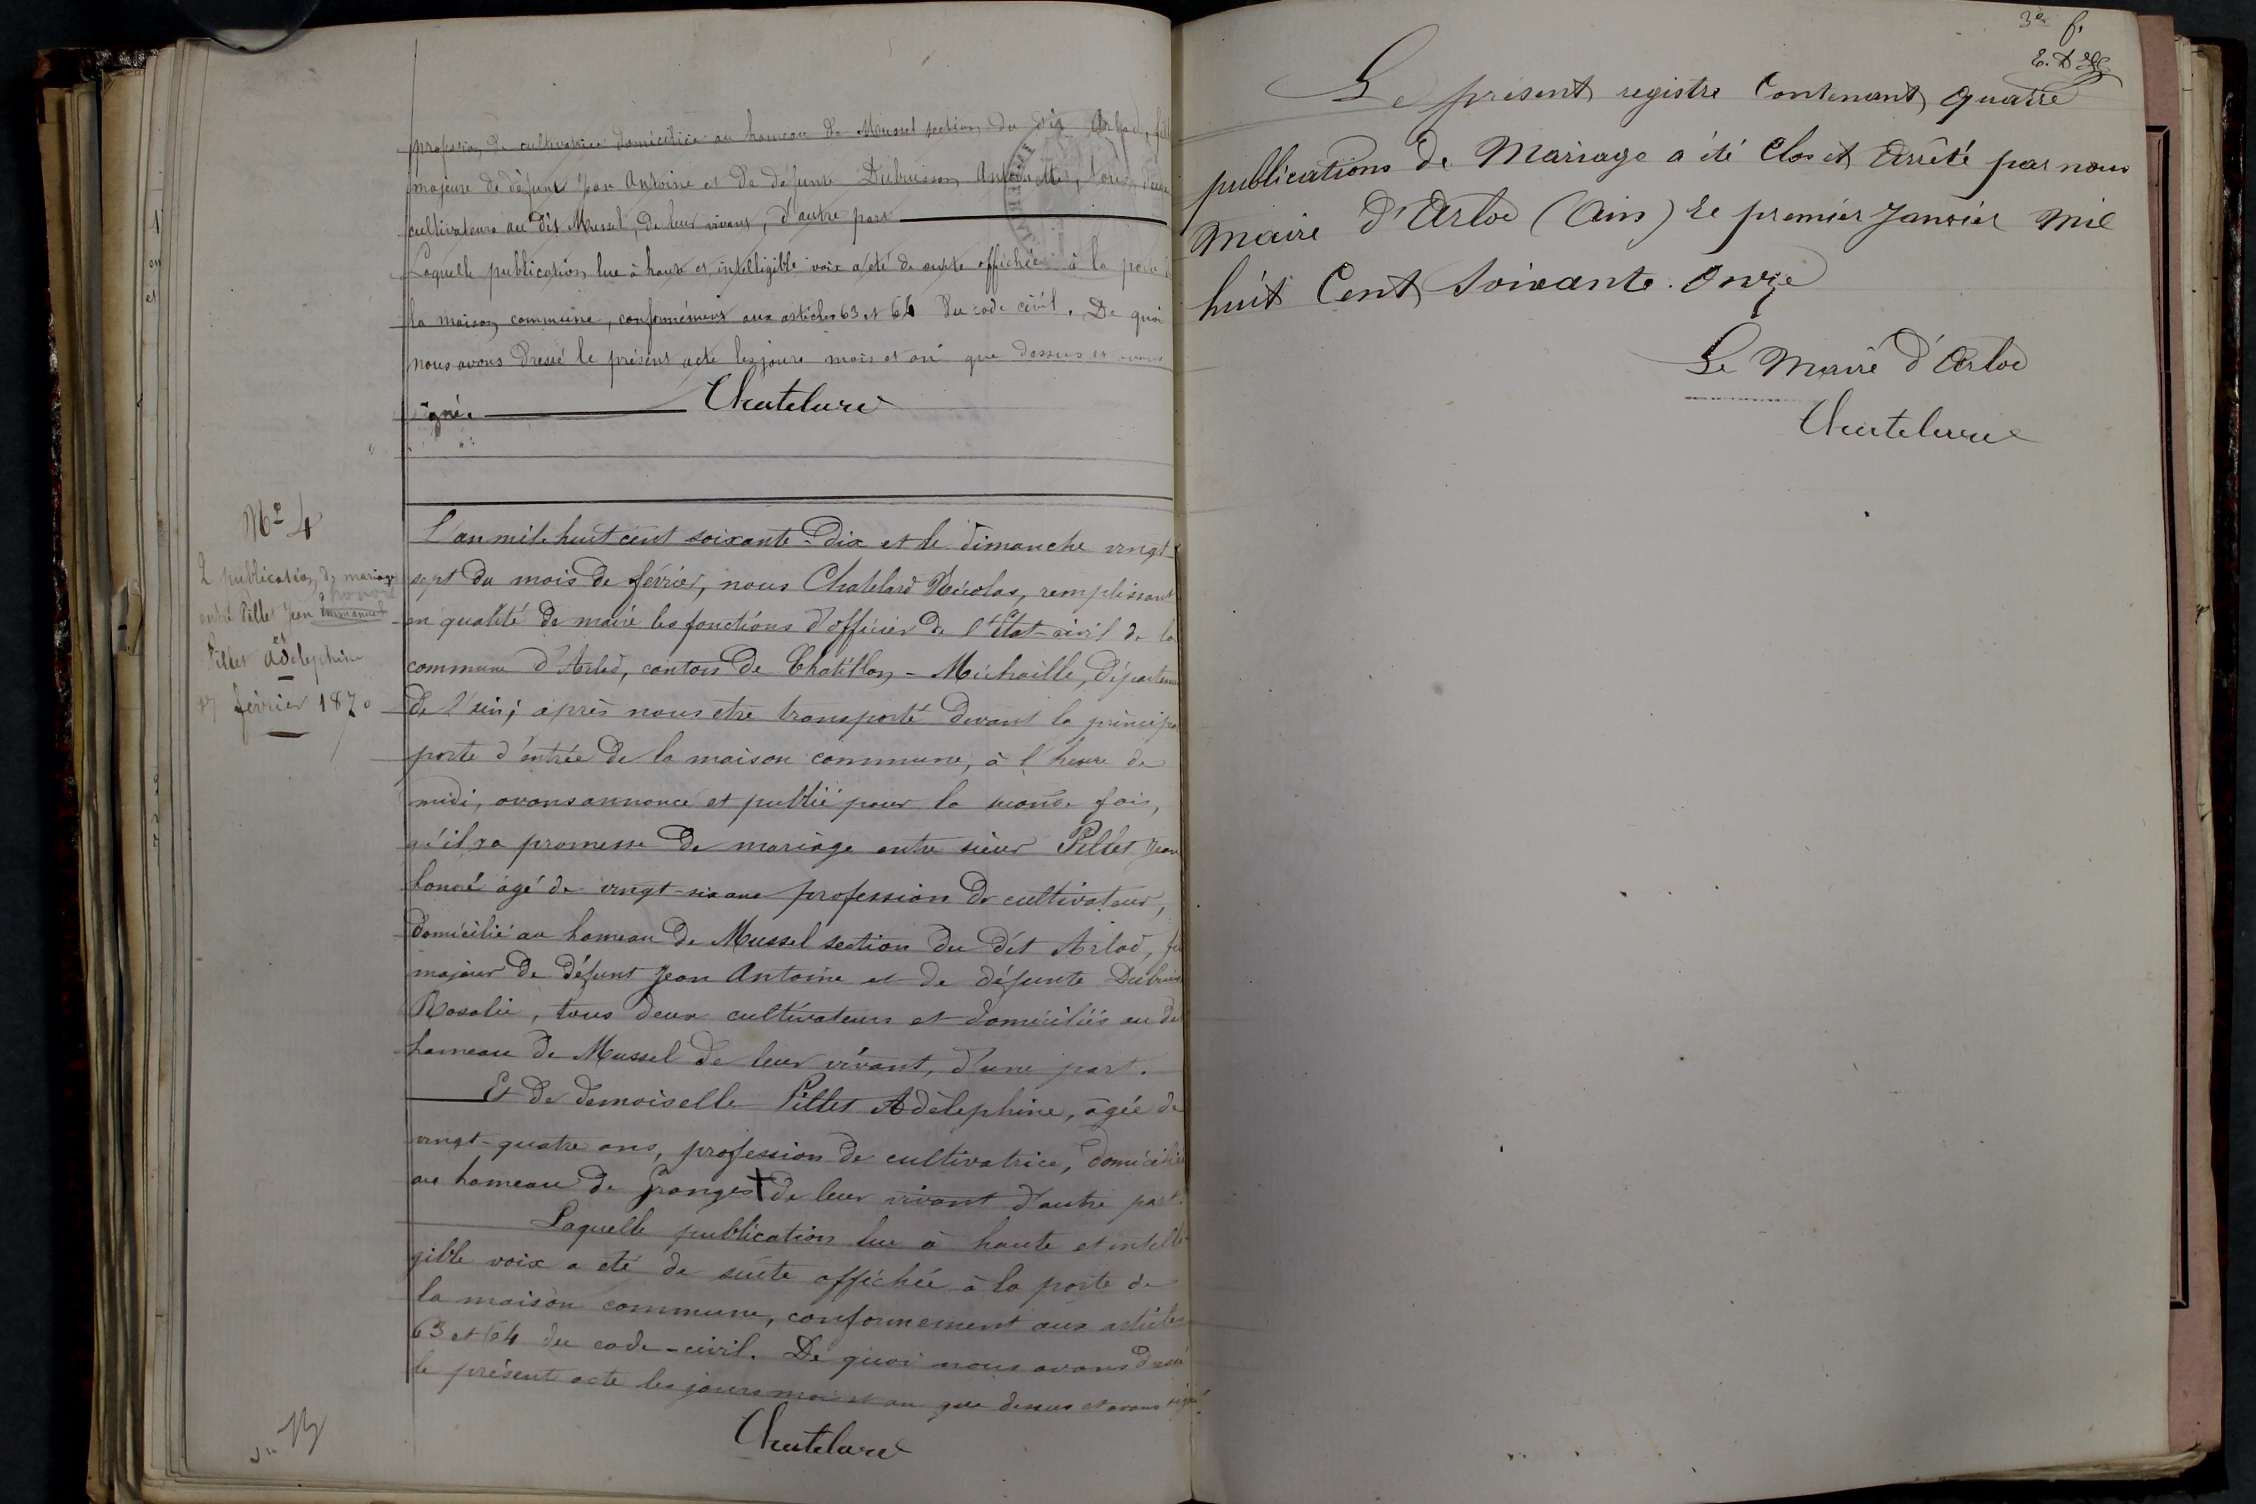 profession de cultivatrice domiciliée au hameau de Mussel section du dit Arlod, fille
majeure de défunt Jean Antoine et de défunte Dubuisson Antoinette, tous deux
cultivateurs au dit Mussel, de leur vivant, d'autre part
Laquelle publication lue à haute et intelligible voix a été de suite affichée à la porte
la maison commune, conformément aux articles 63 et 64 du code civil. De quoi
nous avons dressé le présent acte les jours mois et an que dessus et avons
signé. Chatelard
Nº 4
2 publication de mariage
entre Pillet Jean Emmanuel
honoré
et
Pillet Adelephine
27 février 1870
L'an mil huit cent soixante-dix et le dimanche vingt-
sept du mois de février, nous Chatelard Nicolas, remplissant
en qualité de maire les fonctions d'officier de l'état-civil de la
commune d'Arlod, canton de Chatillon-Michaille, départeme
de l'ain; après nous etre transporté devant la principa
porte d'entrée de la maison commune, à l'heure de
midi, avons annoncé et publié pour la seconde fois,
qu'il y a promesse de mariage entre sieur Pillet Jean
honoré âgé de vingt-six ans profession de cultivateur,
domicilié au hameau de Mussel section du dit Arlod, fi
majeur de défunt Jean Antoine et de défunte Dubuis
Rosalie, tous deux cultivateurs et domiciliés au dit
hameau de Mussel de leur vivant, d'une part.
Et de demoiselle Pillet Adèlephine, âgée de
vingt-quatre ans, profession de cultivatrice, domiciliée
au hameau de Granges + de leur vivant d'autre part.
Laquelle publication lue à haute et intelli-
gible voix a eté de suite affichée à la porte de
la maison commune, conformement aux articles
63 et 64 du code-civil. De quoi nous avons dressé
le présent acte les jours mois et an que dessus et avons signé.
Chatelard
3e f.
E. D
Le présent registre Contenant quatre
publications de Mariage a été Clos et Arrêté par nous
Maire d'Arlod (Ain) le premier Janvier Mil
huit Cent Soixante-Onze
Le Maire d'Arlod
Chatelard